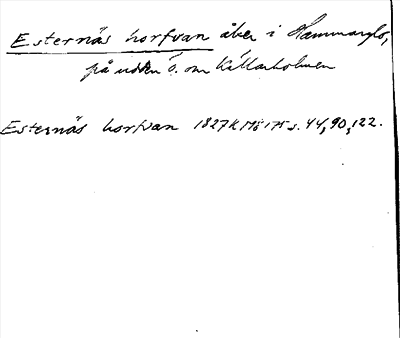 Esternäs horfvan åker i Hammarglo,
på udden ö. om Källarholmen
Esternäs horfvan 1827 K Mö 175 s. 44, 90, 122.